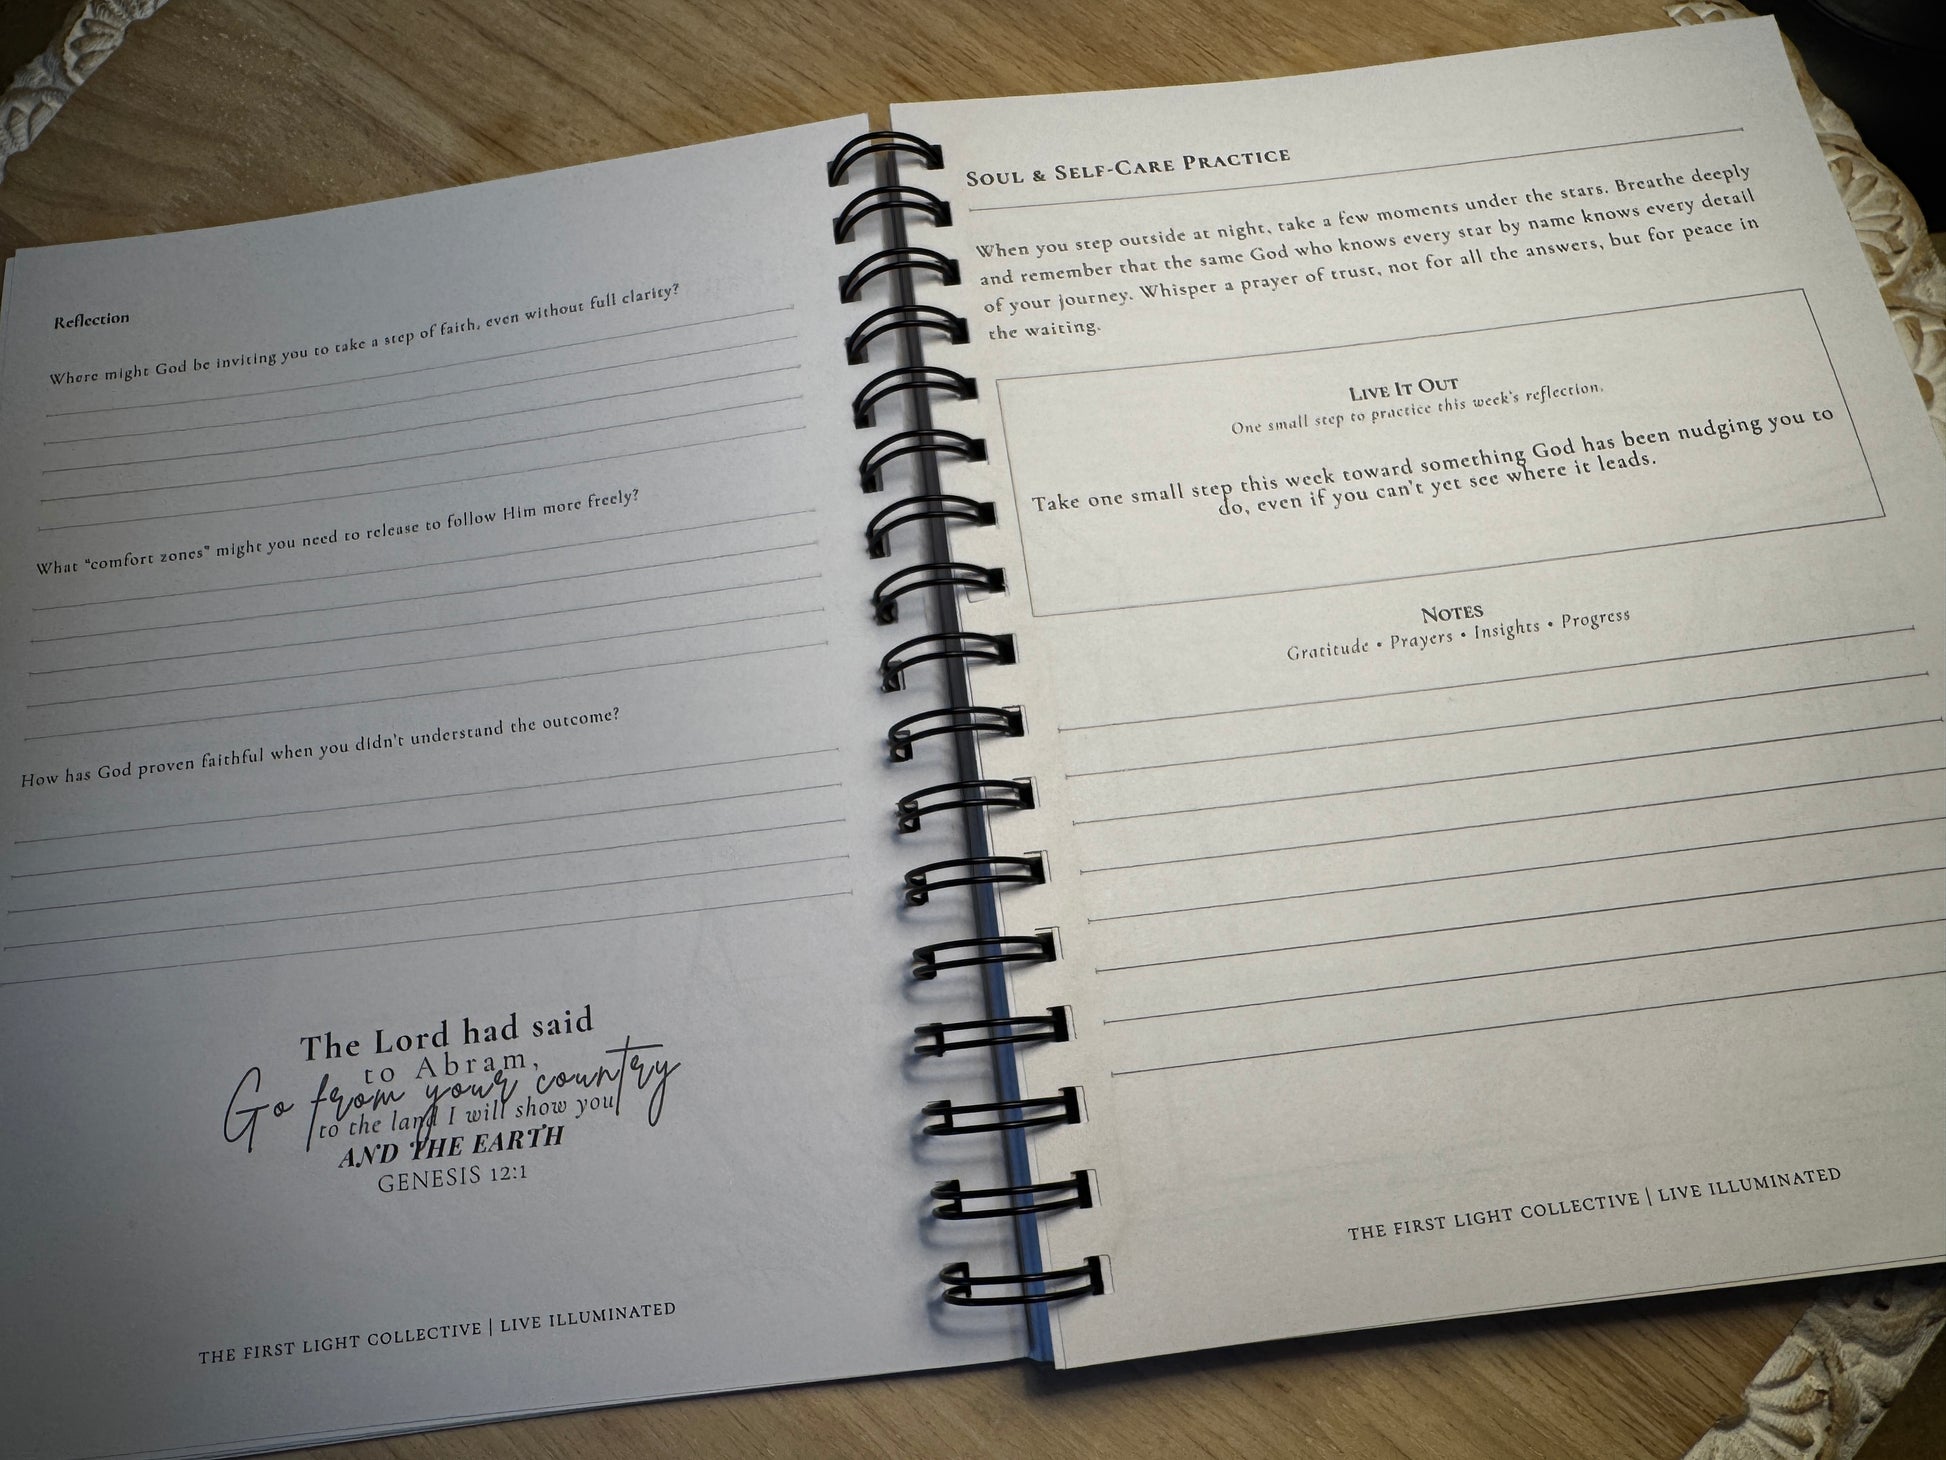 Reflection
Where might God be inviting you to take a step of faith, even without full clarity?
What "comfort zones" might you need to release to follow Him more freely?
How has God proven faithful when you didn't understand the outcome?
The Lord had said
to Abram,
Go from your country
to the land I will show you
AND THE EARTH
GENESIS 12:1
THE FIRST LIGHT COLLECTIVE | LIVE ILLUMINATED
SOUL & SELF-CARE PRACTICE
When you step outside at night, take a few moments under the stars. Breathe deeply
and remember that the same God who knows every star by name knows every detail
of your journey. Whisper a prayer of trust, not for all the answers, but for peace in
the waiting.
LIVE IT OUT
One small step to practice this week's reflection.
Take one small step this week toward something God has been nudging you to
do, even if you can't yet see where it leads.
NOTES
Gratitude • Prayers • Insights • Progress
THE FIRST LIGHT COLLECTIVE | LIVE ILLUMINATED